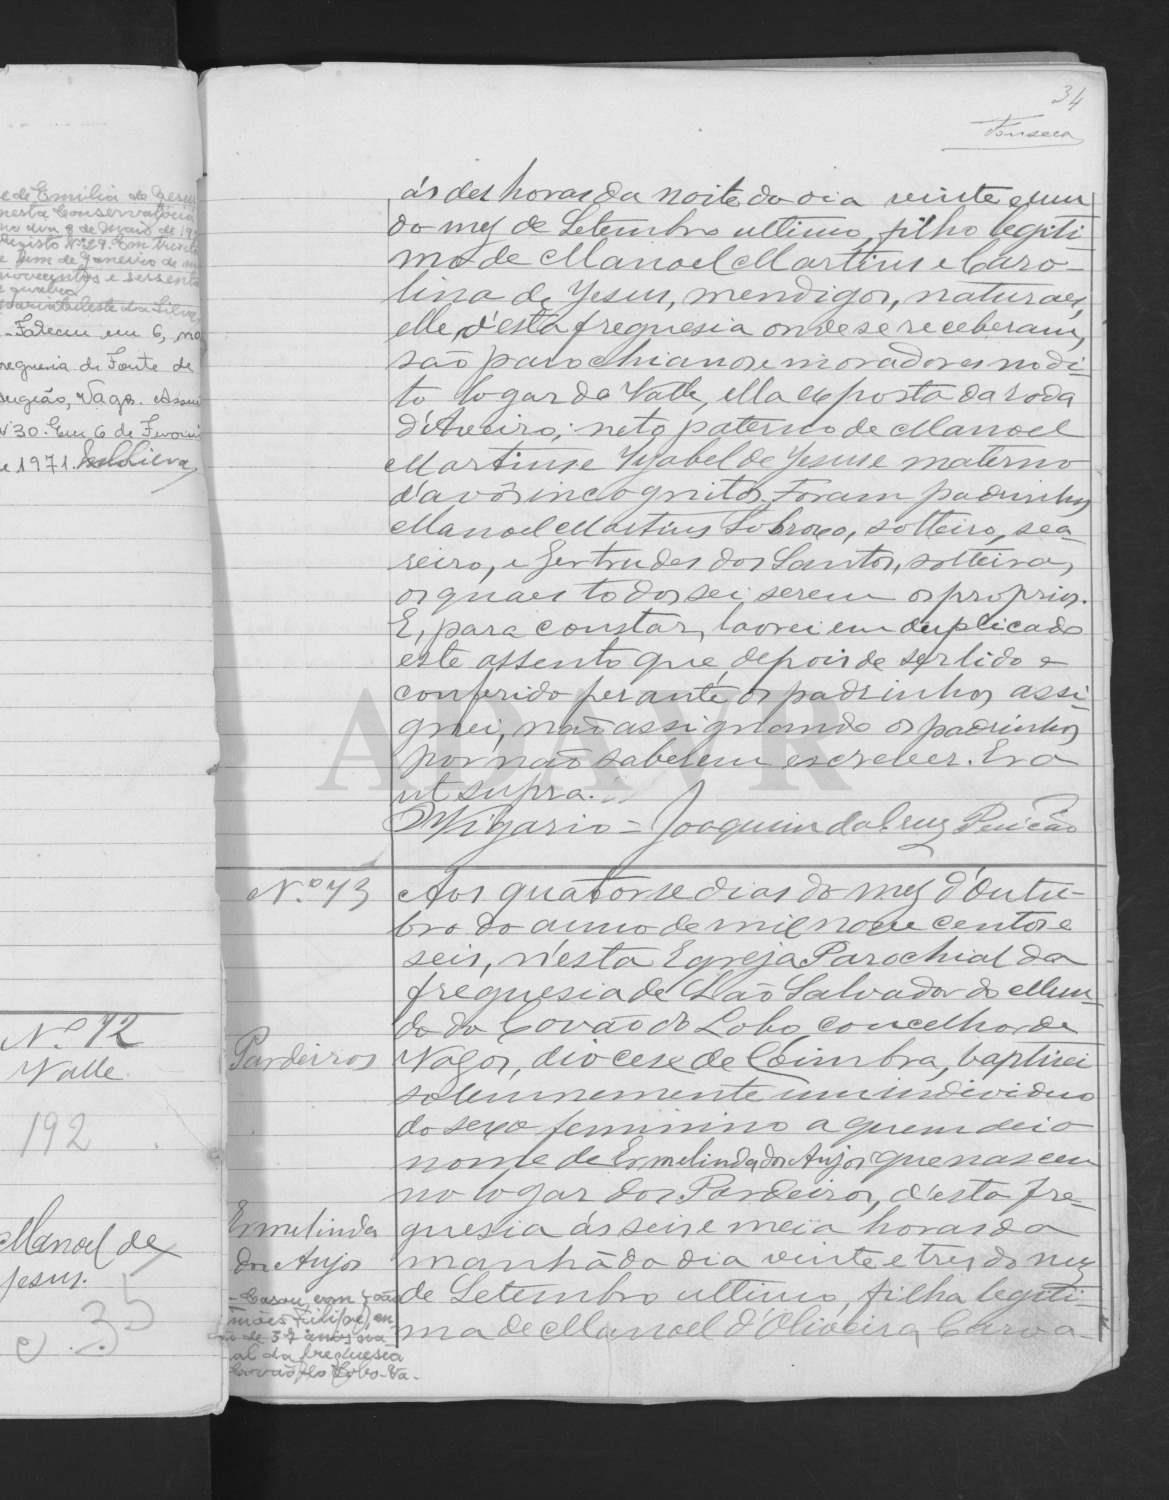 e de Emilia de Jesus
nesta Conservatória
no dia 8 de Maio de 19
Registo Nº 29. Em trinta
e um de Janeiro de mil
novecentos e sessenta
e quatro
Maria Celeste da Silva
- Faleceu em 6, na
freguesia de Fonte de
Angeão, Vagos. Assen
Nº 30. Em 6 de Fevorei
e 1971.
Nº 72
Valle
192
Manoel de
Jesus.
35
34
Fonseca
ás des horas da noite do dia vinte e um
do mez de Setembro ultimo, filho legiti-
mo de Manoel Martins e Caro-
lina de Jesus, mendigos, naturaes,
elle, d'esta freguesia onde se receberam,
são parochianos e moradores no di-
to logar do Valle, ella exposta da roda
d'Aveiro; neto paterno de Manoel
Martins e Yzabel de Jesus e materno
d'avós incognitos. Foram padrinhos
Manoel Martins Lobroxo, solteiro, sea-
reiro, e Gertrudes dos Santos, solteira,
os quaes todos sei serem os proprios.
E, para constar, lavrei em duplicado
este assento que, depois de ser lido e
conferido perante os padrinhos, assi-
gnei, não assignando os padrinhos
por não saberem escrever. Era
ut supra.
O Vigario = Joaquim da Cruz Pericão
N.º 73
Pardeiros
Ermelinda
dos Anjos
- Casou com João
Simões Fili(pe), en-
de 37 anos na-
al da freguesia
Covão do Lobo-Va-
Aos quatorse dias do mez d'Outu-
bro do anno de mil nove centos e
seis, n'esta Egreja Parochial da
freguesia de São Salvador do Mun-
do do Covão do Lobo, concelho de
Vagos, diocese de Coimbra, baptisei
solemnemente um individuo
do sexo feminino a quem dei o
nome de Ermelinda dos Anjos que nasceu
no logar dos Pardeiros, d'esta fre-
guesia ás seis e meia horas da
manhã do dia vinte e tres do mez
de Setembro ultimo, filha legiti-
ma de Manoel d'Oliveira Carva-
ADAVR